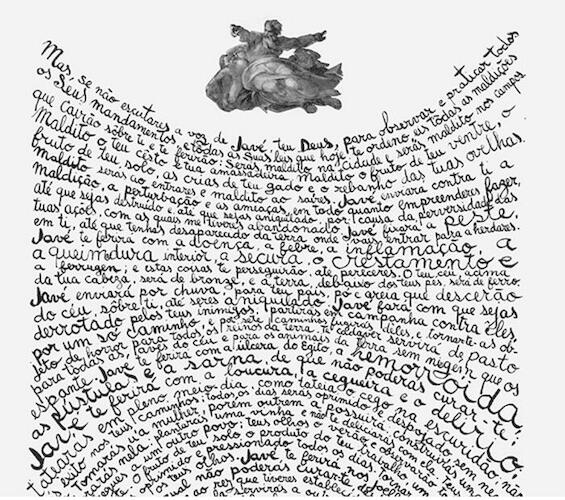 Mas, se não escutares a voz de Javé teu Deus, para observar e praticar todos
os Seus mandamentos e todas as Suas leis que hoje te ordeno, eis todas as maldições
que cairão sôbre ti e te ferirão: serás maldito na cidade e serás maldito nos campos
Maldito o teu cêsto e tua amassadeira. Maldito o fruto de teu ventre, o
fruto de teu solo, as crias de teu gado e o rebanho das tuas ovelhas.
Maldito serás ao entrares e maldito ao saíres. Javé enviará contra ti a
maldição, a perturbação e as ameaças, em todo quanto empreenderes fazer,
até que sejas destruído e até que sejas aniquilado, por causa da perversidade das
tuas ações, com as quais me tiveres abandonado. Javé fixará a peste,
em ti, até que tenhas desaparecido da terra onde vais entrar para a herdares.
Javé te ferirá com a doença, a febre, a inflamação, a
queimadura interior, a secura, o crestamento e
a ferrugem; e estas coisas te perseguirão, até pereceres. O teu céu, acima
da tua cabeça, será de bronze, e a terra, debaixo dos teus pés, será de ferro.
Javé enviará por chuva, para teu país, pó e areia que descerão
do céu, sôbre ti, até seres aniquilado. Javé fará com que sejas
derrotado pelos teus inimigos; partirás em campanha contra êles
por um só caminho, e por sete caminhos fugirás dêles, e tornar-te-ás ob-
jeto de horror para todos os reinos da terra. Teu cadáver servirá de pasto
para todas as aves do céu e para os animais da terra, sem ninguém que os
espante. Javé te ferirá com a úlcera do Egito, a hemorroida,
as pústulas e a sarna, de que não poderás curar-te;
Javé te ferirá com a loucura, a cegueira e o delírio.
Tatearás em pleno meio dia, como tateia o cego na escuridão,
nos teus caminhos; todos os dias serás oprimido e despojado, sem
Tomarás uma mulher, porém outrem a possuirá; construirás um
plantarás uma vinha e não te deliciarás com
a um outro povo; teus olhos o verão e
O fruto de teu solo e o produto do teu trabalho, um
oprimido e pressionado todos os dias.
os teus olhos. Javé te ferirá nos
não poderás curar-te,
ao rei que tiveres
servirás a